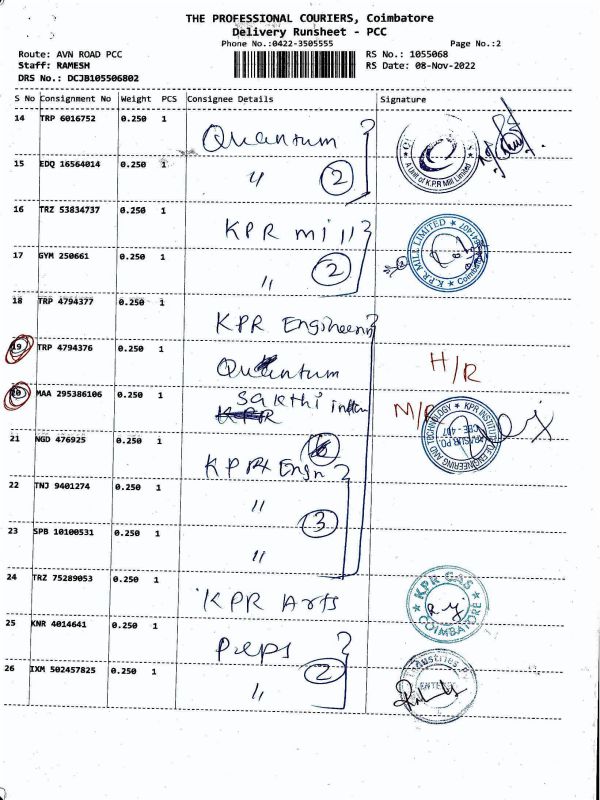 THE PROFESSIONAL COURIERS, Coimbatore
Delivery Runsheet - PCC
Phone No.:0422-3505555 Page No.:2
Route: AVN ROAD PCC RS No.: 1055068
Staff: RAMESH RS Date: 08-Nov-2022
DRS No.: DCJB105506802
S No Consignment No Weight PCS Consignee Details Signature
14 TRP 6016752 0.250 1 Quantum
A Unit of K.P.R Mill Limited
15 EDQ 16564014 0.250 1 " 2
16 TRZ 53834737 0.250 1 KPR mill
K.P.R. MILL LIMITED
17 GYM 250661 0.250 1 " 2
18 TRP 4794377 0.250 1 KPR Engineering
19 TRP 4794376 0.250 1 Quantum H/R
20 MAA 295386106 0.250 1 Sakthi M/R
KPR
21 NGD 476925 0.250 1 KPR Engn
22 TNJ 9401274 0.250 1 " 3
23 SPB 10100531 0.250 1 "
24 TRZ 75289053 0.250 1 KPR Arts
KPR CAS
COIMBATORE
25 KNR 4014641 0.250 1
26 IXM 502457825 0.250 1 " 2